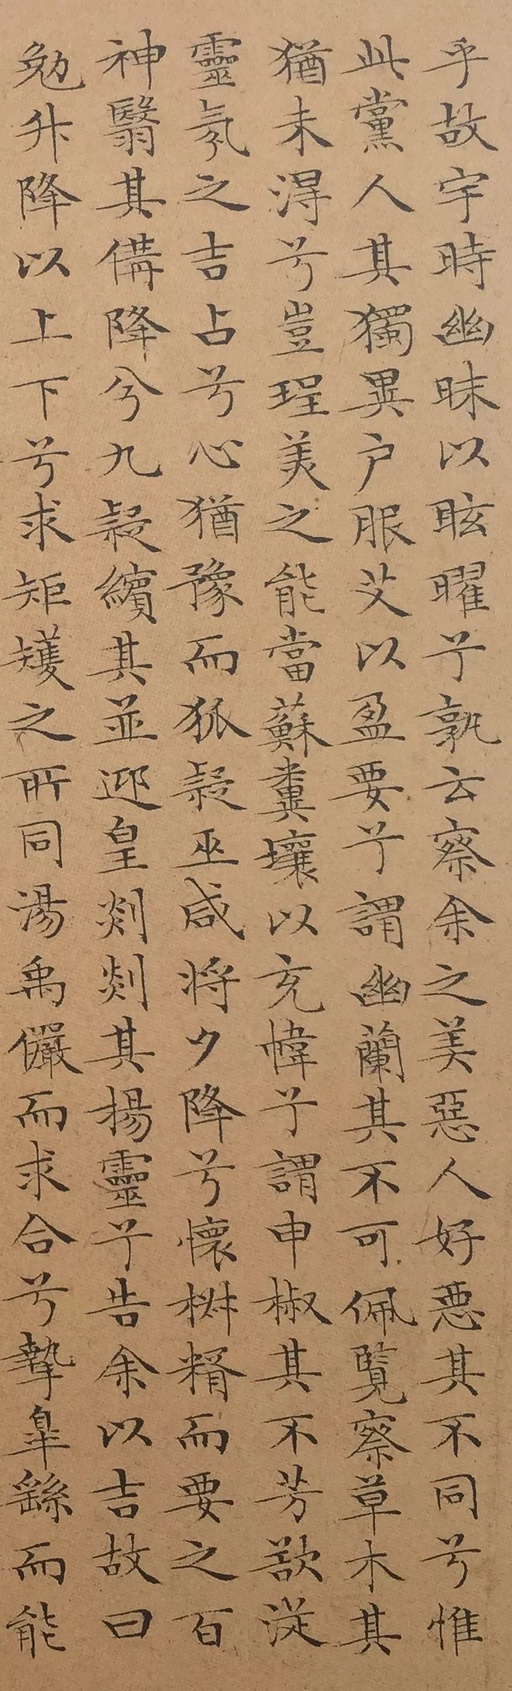 乎故宇時幽昧以眩曜兮孰云察余之美惡人好惡其不同兮惟
此黨人其獨異户服艾以盈要兮謂幽蘭其不可佩覽察草木其
猶未淂兮豈珵美之能當蘇糞壤以充幃兮謂申椒其不芳欲従
靈氛之吉占兮心猶豫而狐疑巫咸将夕降兮懷椒糈而要之百
神翳其備降兮九疑繽其並迎皇剡剡其揚靈兮告余以吉故曰
勉升降以上下兮求矩矱之所同湯禹儼而求合兮摯皐繇而能